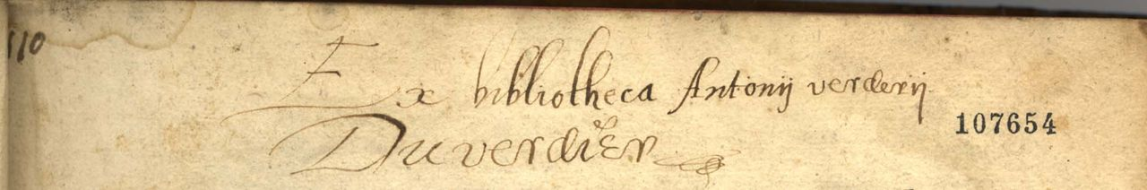 110
Ex bibliotheca Antonij verderij
107654
Duverdier